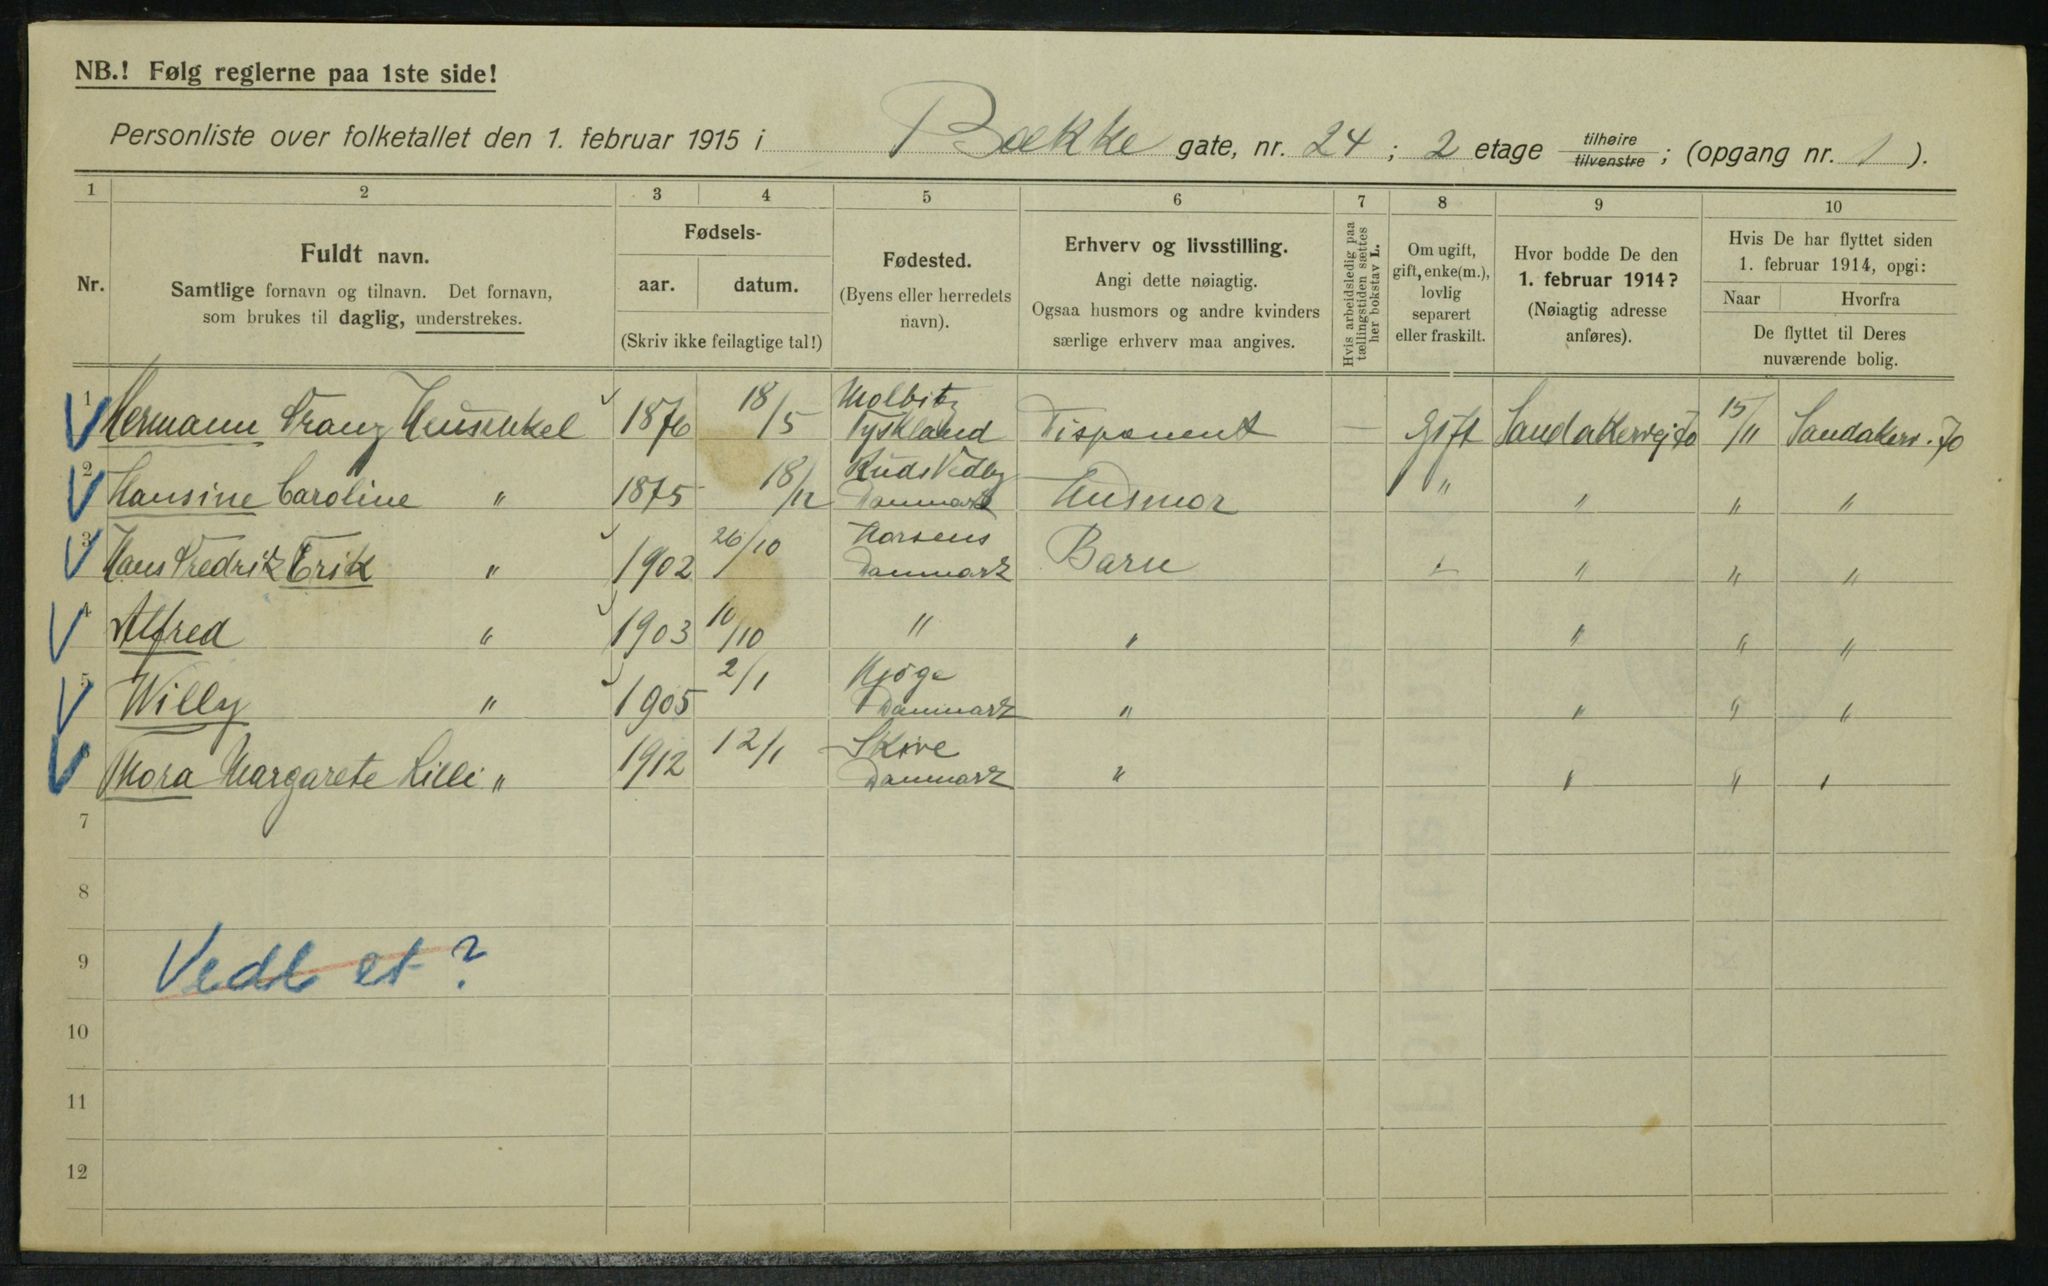 NB.! Følg reglerne paa 1ste side!
Personliste over folketallet den 1. februar 1915 i Bække gate, nr. 24; 2 etage tilhøire tilvenstre; (opgang nr. 1).
1 2 3 4 5 6 7 8 9 10
Nr.
Fuldt navn.
Samtlige fornavn og tilnavn. Det fornavn,
som brukes til daglig, understrekes.
Fødsels-
aar. datum.
(Skriv ikke feilagtige tal!)
Fødested.
(Byens eller herredets
navn).
Erhverv og livsstilling.
Angi dette nøiagtig.
Ogsaa husmors og andre kvinders
særlige erhverv maa angives.
Hvis arbeidsledig paa
tællingstiden sættes
her bokstav L.
Om ugift,
gift, enke(m.),
lovlig
separert
eller fraskilt.
Hvor bodde De den
1. februar 1914?
(Nøiagtig adresse
anføres).
Hvis De har flyttet siden
1. februar 1914, opgi:
Naar Hvorfra
De flyttet til Deres
nuværende bolig.
1 Hermann Franz Heuschkel 1876 18/5 Molbitz Tyskland Disponent — Gift Sandakervej 70 15/11 Sandakerv. 70
2 Hansine Caroline " 1875 18/12 Ruds Vedby Danmark Husmor " " " "
3 Hans Fredrik Erik " 1902 26/10 Horsens Danmark Barn - " " "
4 Alfred " 1903 10/10 " " " " "
5 Willy " 1905 2/1 Kjöge Danmark " " " "
6 Thora Margarete Lilli " 1912 12/1 Skive Danmark " " " "
7
8
9 Vedl et?
10
11
12